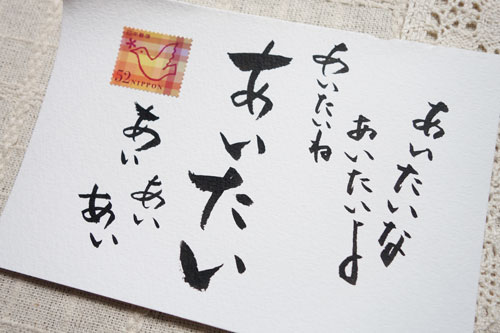 あいたいな
あいたいよ
あいたいね
あいたい
あい
あい
あい
52 NIPPON